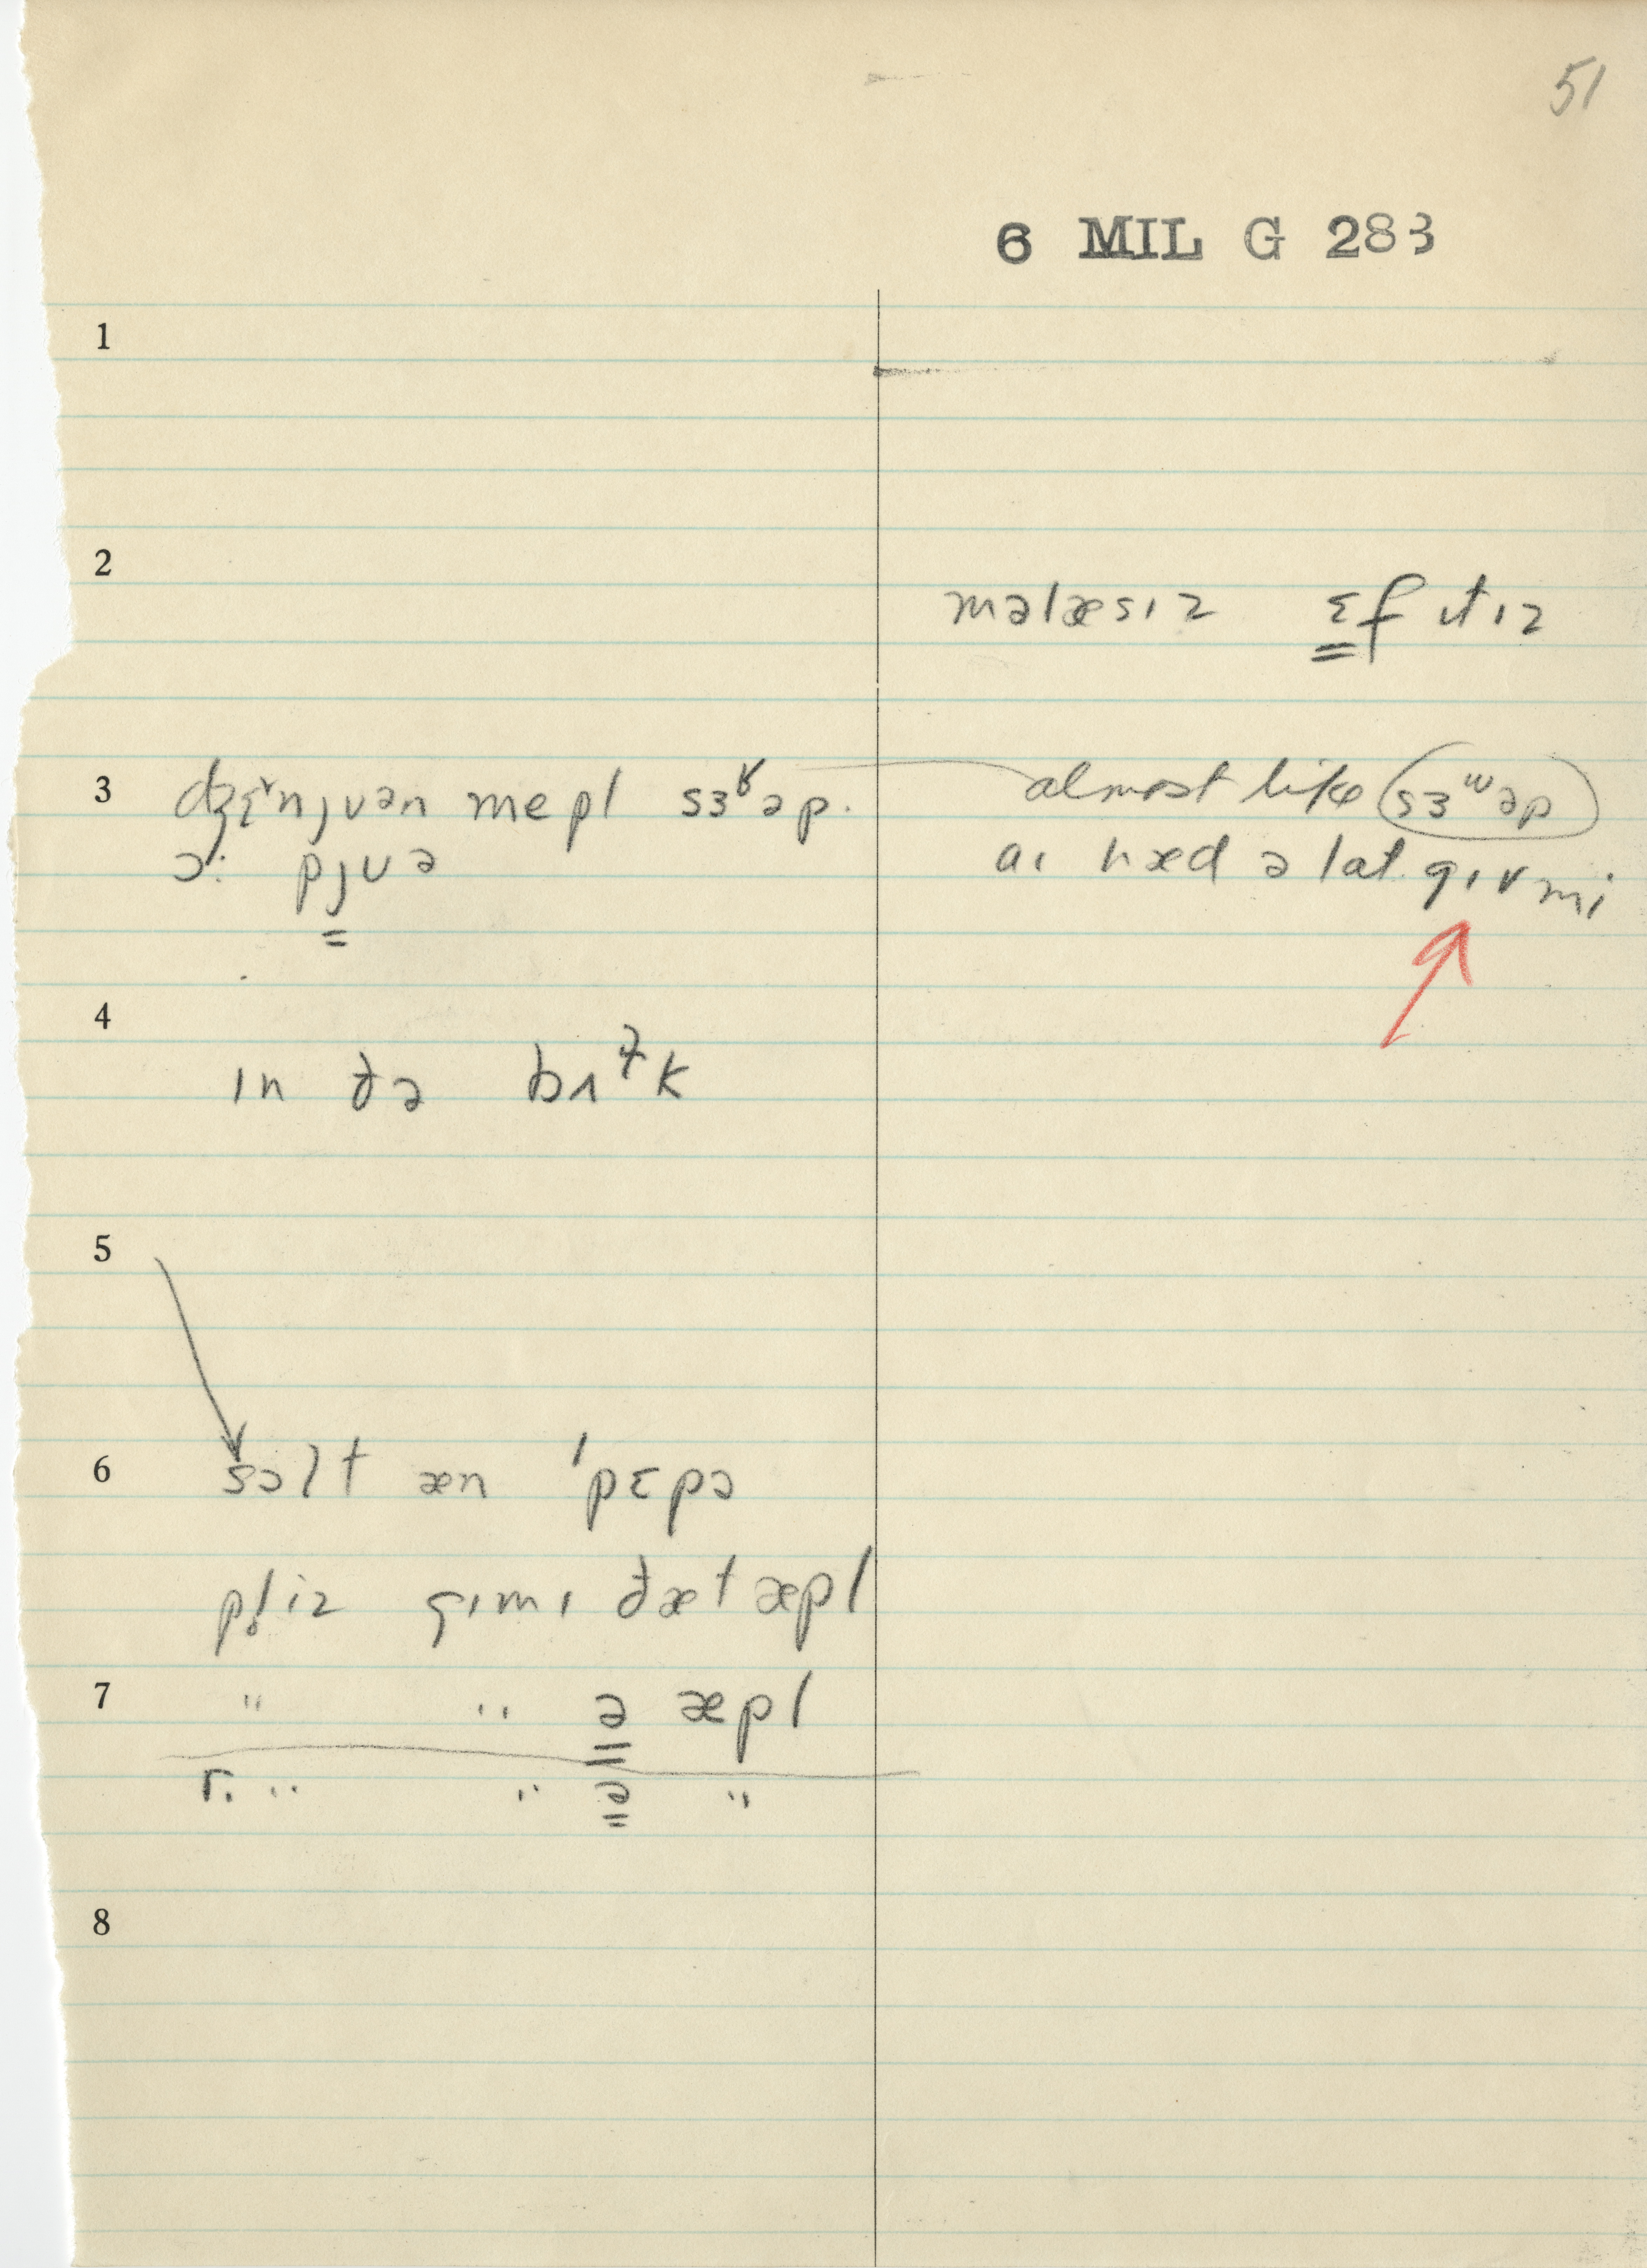 51
6 MIL G 283
1
2
məlæsɪz ɛf ɪtɪz
3 dʒɛ˞nȷʋən mepl sɜᵝəp. almost like sɜʷəp
ɔ: pȷʋə aɪ hæd ə lat gɪvmi
4
ɪn ðə brɪk
5
6 sɔlt æn 'pɛpə
pl̥iz gɪmɪ ðæt æpl
7 " " ə æpl
r. " " ə "
8